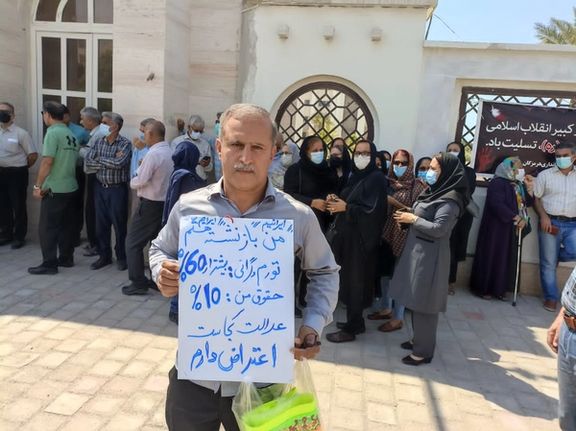 "ایرانیم" "ایرانیم"
من بازنشسته هستم
تورم و گرانی: بیشتر از 60%
حقوق من: 10%
عدالت کجاست
اعتراض دارم
کبیر انقلاب اسلامی
تسلیت باد.